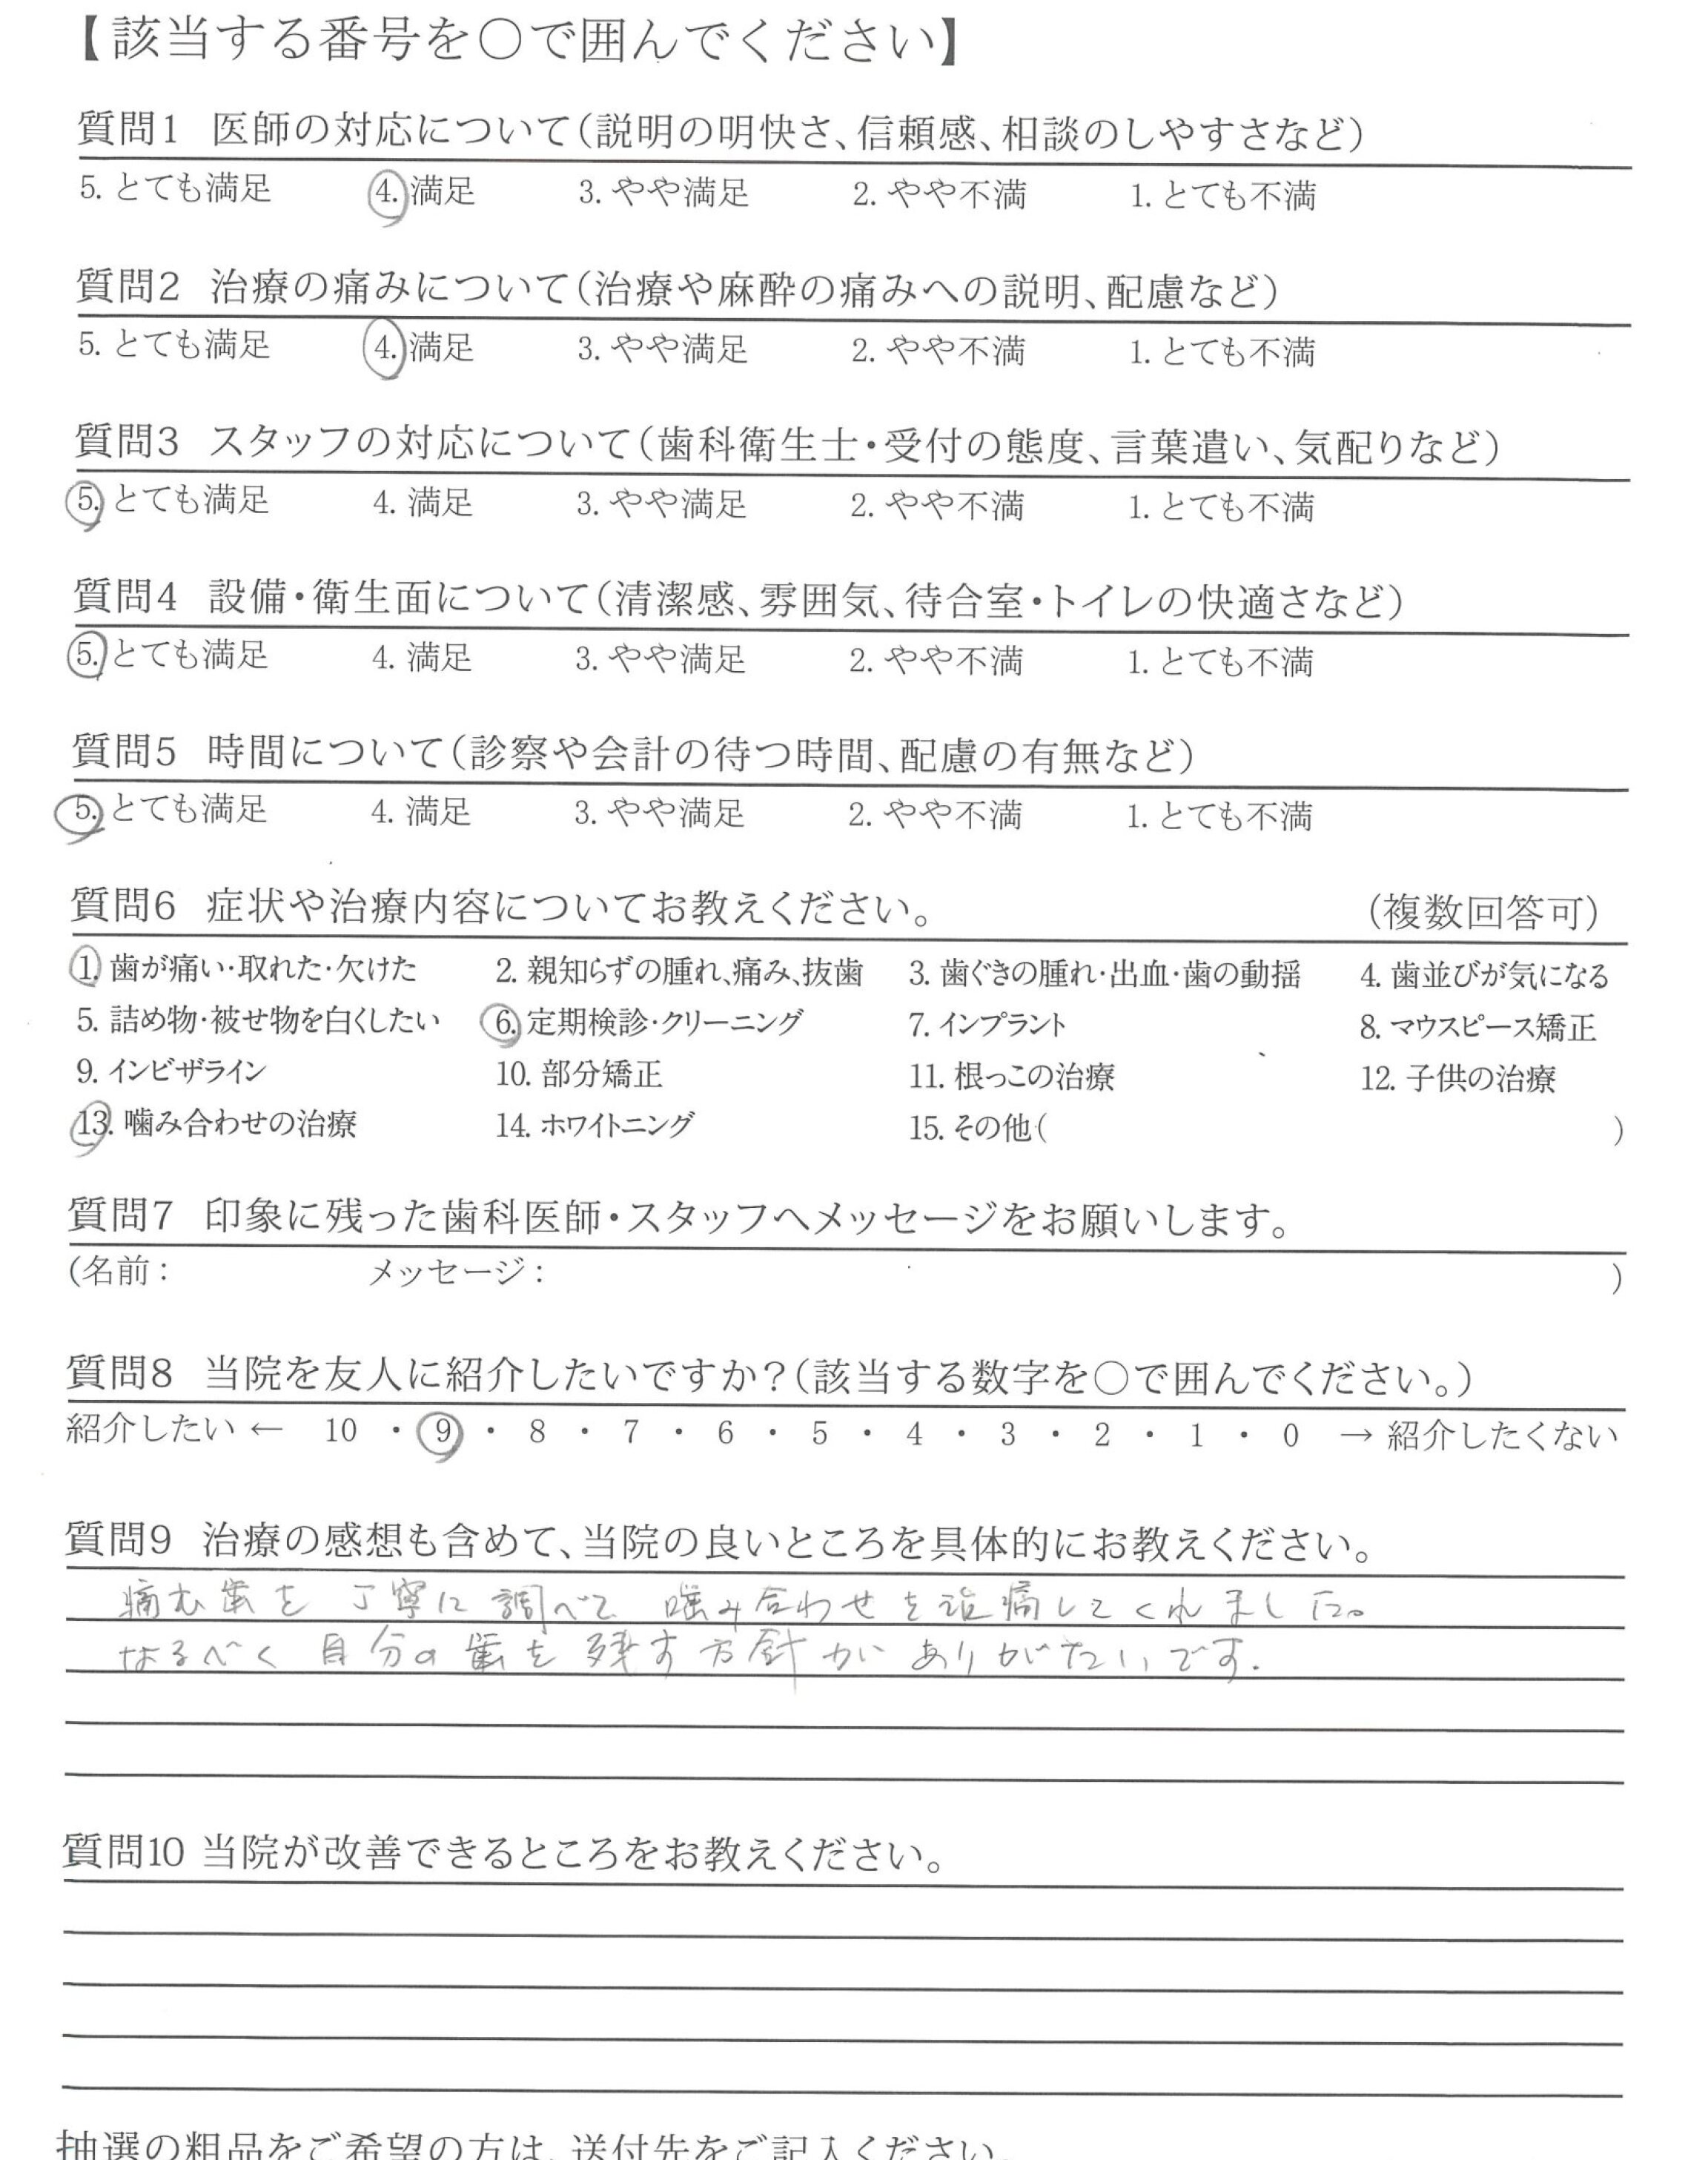 【該当する番号を○で囲んでください】
質問1 医師の対応について(説明の明快さ、信頼感、相談のしやすさなど)
5. とても満足 4. 満足 3. やや満足 2. やや不満 1. とても不満
質問2 治療の痛みについて(治療や麻酔の痛みへの説明、配慮など)
5. とても満足 4. 満足 3. やや満足 2. やや不満 1. とても不満
質問3 スタッフの対応について(歯科衛生士・受付の態度、言葉遣い、気配りなど)
5. とても満足 4. 満足 3. やや満足 2. やや不満 1. とても不満
質問4 設備・衛生面について(清潔感、雰囲気、待合室・トイレの快適さなど)
5. とても満足 4. 満足 3. やや満足 2. やや不満 1. とても不満
質問5 時間について(診察や会計の待つ時間、配慮の有無など)
5. とても満足 4. 満足 3. やや満足 2. やや不満 1. とても不満
質問6 症状や治療内容についてお教えください。 (複数回答可)
1. 歯が痛い・取れた・欠けた 2. 親知らずの腫れ、痛み、抜歯 3. 歯ぐきの腫れ・出血・歯の動揺 4. 歯並びが気になる
5. 詰め物・被せ物を白くしたい 6. 定期検診・クリーニング 7. インプラント 8. マウスピース矯正
9. インビザライン 10. 部分矯正 11. 根っこの治療 12. 子供の治療
13. 噛み合わせの治療 14. ホワイトニング 15. その他( )
質問7 印象に残った歯科医師・スタッフへメッセージをお願いします。
(名前: メッセージ: )
質問8 当院を友人に紹介したいですか?(該当する数字を○で囲んでください。)
紹介したい ← 10 ・ 9 ・ 8 ・ 7 ・ 6 ・ 5 ・ 4 ・ 3 ・ 2 ・ 1 ・ 0 → 紹介したくない
質問9 治療の感想も含めて、当院の良いところを具体的にお教えください。
痛む歯を丁寧に調べて 噛み合わせをしてくれました。
なるべく自分の歯を残す方針が ありがたいです.
質問10 当院が改善できるところをお教えください。
抽選の粗品をご希望の方は、送付先をご記入ください。